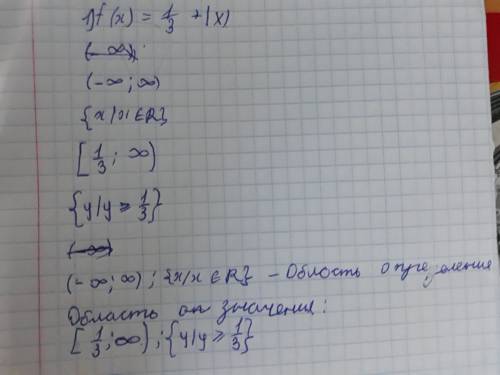 1) f(x) = 1/3 + |x|
(-∞);
(-∞; ∞)
{x/x ∈ R}
[1/3; ∞)
{y/y ≥ 1/3}
(-∞)
(-∞; ∞); {x/x ∈ R} - Область определения
Область он значения:
[1/3; ∞); {y/y ≥ 1/3}